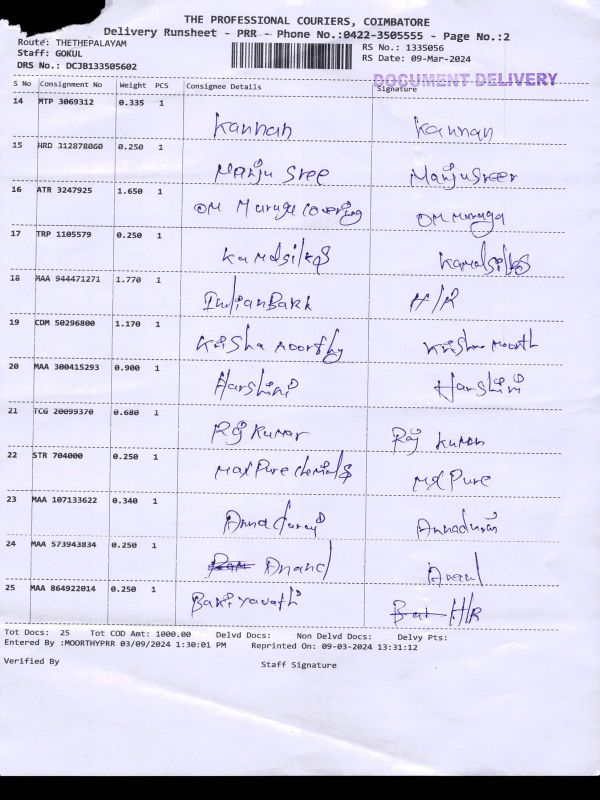 THE PROFESSIONAL COURIERS, COIMBATORE
Delivery Runsheet - PRR - Phone No.:0422-3505555 - Page No.:2
Route: THETHEPALAYAM
RS No.: 1335056
Staff: GOKUL
RS Date: 09-Mar-2024
DRS No.: DCJB133505602
DOCUMENT DELIVERY
S No Consignment No Weight PCS Consignee Details Signature
14 MTP 3069312 0.335 1
Kannan Kannan
15 HRD 312878060 0.250 1
Manju Sree Manju Sree
16 ATR 3247925 1.650 1
OM Muruga Covering OM Muruga
17 TRP 1105579 0.250 1
Kamalsilks Kamalsilks
18 MAA 944471271 1.770 1
IndianBank H/R
19 CDM 50296800 1.170 1
Krisha moorthy Krishna moorth
20 MAA 300415293 0.900 1
Harshini Harshini
21 TCG 20099370 0.680 1
Raj Kumar Raj Kumar
22 STR 704000 0.250 1
Max Pure Chemicals Max Pure
23 MAA 107133622 0.340 1
Annadurai Annadurai
24 MAA 573943834 0.250 1
Anand Anand
25 MAA 864922014 0.250 1
Bakiyavathi H/R
Tot Docs: 25 Tot COD Amt: 1000.00 Delvd Docs: Non Delvd Docs: Delvy Pts:
Entered By :MOORTHYPRR 03/09/2024 1:30:01 PM Reprinted On: 09-03-2024 13:31:12
Verified By Staff Signature